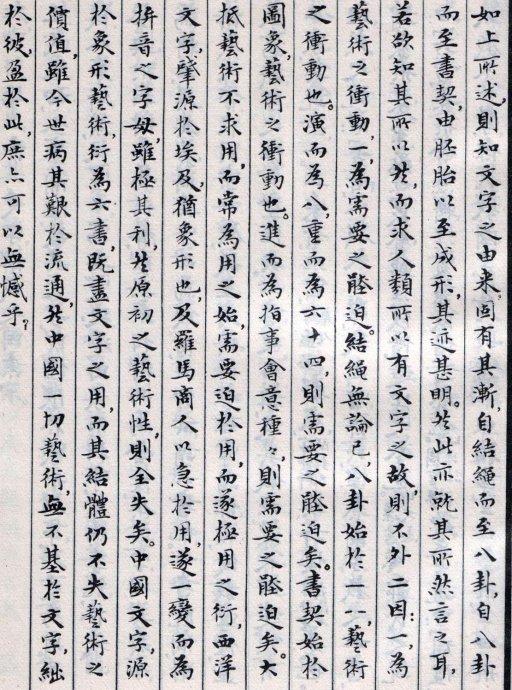 如上所述,則知文字之由來,固有其漸,自結繩而至八卦,自八卦
而至書契,由胚胎以至成形,其迹甚明。然此亦就其所然言之耳,
若欲知其所以然,而求人類所以有文字之故,則不外二因:一,為
藝術之衝動,一,為需要之驅迫。結繩無論已,八卦始於一一,藝術
之衝動也。演而為八,重而為六十四,則需要之驅迫矣。書契始於
圖象,藝術之衝動也。進而為指事會意種々,則需要之驅迫矣。大
抵藝術不求用,而常為用之始,需要迫於用,而遂極用之衍,西洋
文字,肇源於埃及,猶象形也,及羅馬商人以急於用,遂一變而為
拼音之字母,雖極其利,然原初之藝術性,則全失矣。中國文字,源
於象形藝術,衍為六書,既盡文字之用,而其結體仍不失藝術之
價值,雖今世病其艱於流通,然中國一切藝術,無不基於文字,絀
於彼,盈於此,庶亦可以無憾乎?